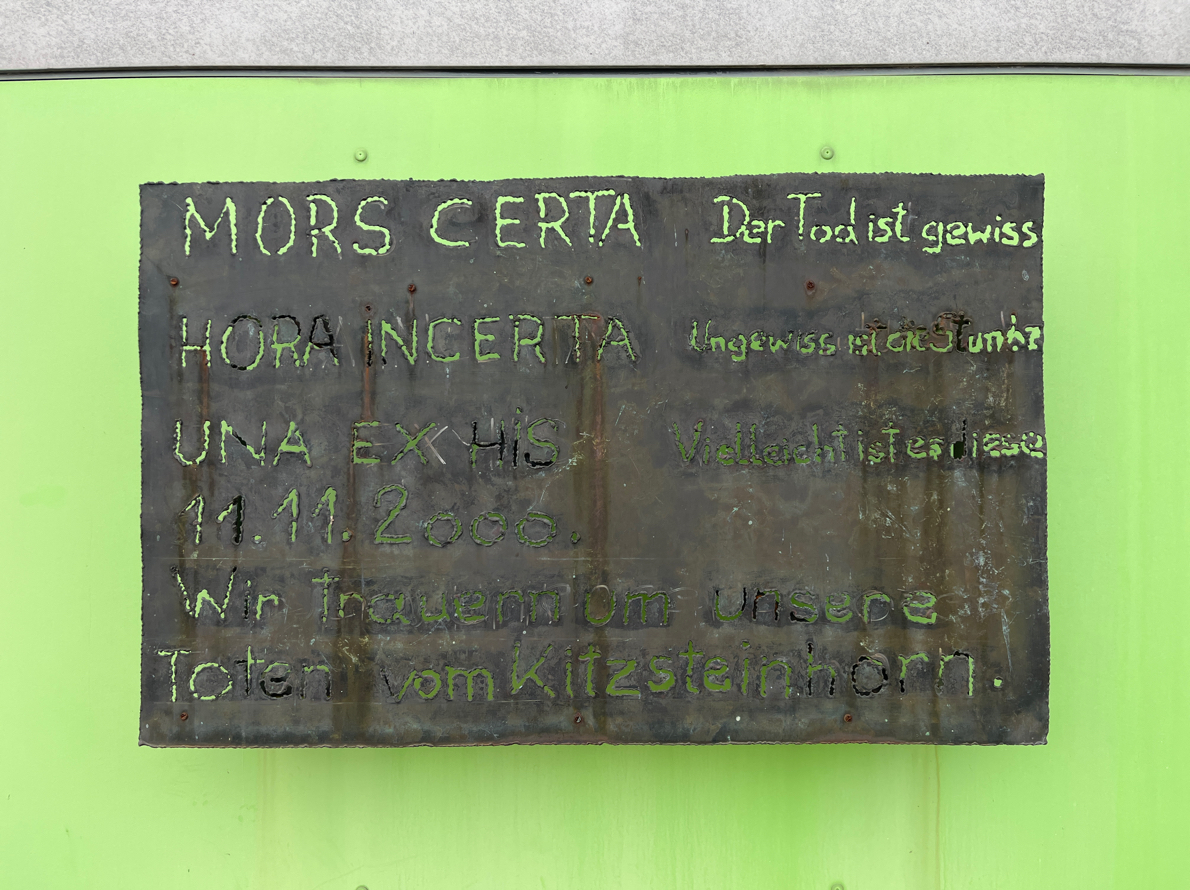 MORS CERTA Der Tod ist gewiss
HORA INCERTA Ungewiss ist die Stunde
UNA EX HiS Vielleicht ist es diese
11.11.2000.
Wir trauern um unsere
Toten vom Kitzsteinhorn.